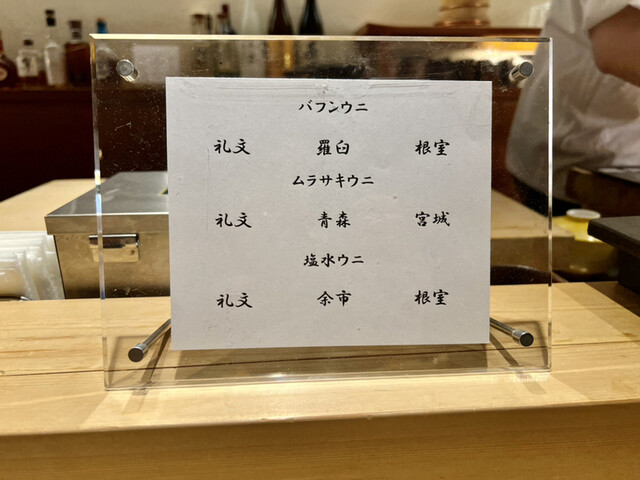 バフンウニ
礼文 羅臼 根室
ムラサキウニ
礼文 青森 宮城
塩水ウニ
礼文 余市 根室